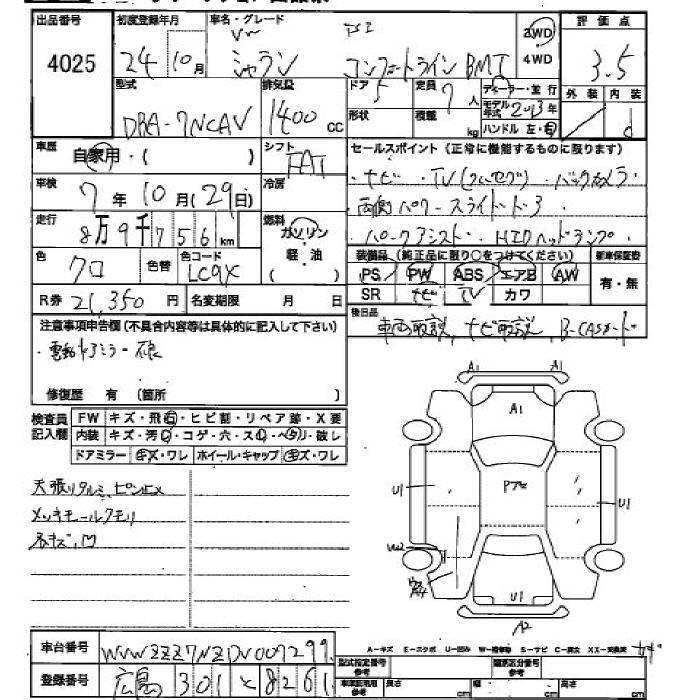 出品番号
4025
初度登録年月
24年10月
車名・グレード
VW TSI
シャラン コンフォートライン BMT
2WD
4WD
評価点
3.5
外装 内装
d
型式
DBA-7NCAV
排気量
1400 cc
ドア 5
形状
定員 7 人
積載 kg
ディーラー・並行
モデル年式 2013年
ハンドル 左・右
車歴
自家用・( )
シフト
FAT
セールスポイント (正常に機能するものに限ります)
・ナビ ・TV(フルセグ) ・バックカメラ
・両側パワースライドドア
・パークアシスト ・HIDヘッドランプ
車検
7年10月(29日)
冷房
走行
8万9千756km
燃料
ガソリン
軽・油
色
クロ
色替
色コード
LC9X
装備品 (純正品に限り○をつけてください)
新車保証書
PS PW ABS エアB AW
SR ナビ TV カワ
有・無
R券 21,350円
名変期限 月 日
後日品
車両取説, ナビ取説, B-CASカード
注意事項申告欄 (不具合内容等は具体的に記入して下さい)
・電動ドアミラー不良
修復歴 有 (箇所 )
検査員
記入欄
FW キズ・飛石・ヒビ割・リペア跡・X要
内装 キズ・汚レ・コゲ・穴・スレ・ヘタリ・破レ
ドアミラー キズ・ワレ ホイール・キャップ キズ・ワレ
天張リタルミ、ピンドメ
メッキモールクモリ
小キズ,凹
A1 A1
A1
Pアセ
U1
U1
W2
U1
A2
車台番号
WVWZZZ7NZDV007299
登録番号
広島 301 と 8261
A-キズ E-エクボ U-凹み W-補修跡 S-サビ C-腐食 XX-交換済
型式指定番号
参考
類別区分番号
参考
車検証記載
参考
長さ cm
幅 cm
高さ cm